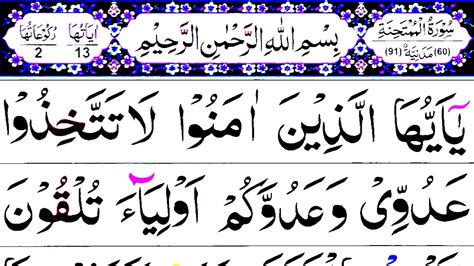 سُوْرَةُ الْمُمْتَحِنَةِ
(60) مَدَنِيَّةٌ (91)
بِسْمِ اللّٰهِ الرَّحْمٰنِ الرَّحِيْمِ
اٰيَاتُهَا 13
رُكُوْعَاتُهَا 2
يٰۤاَيُّهَا الَّذِيْنَ اٰمَنُوْا لَا تَتَّخِذُوْا
عَدُوِّيْ وَعَدُوَّكُمْ اَوْلِيَآءَ تُلْقُوْنَ